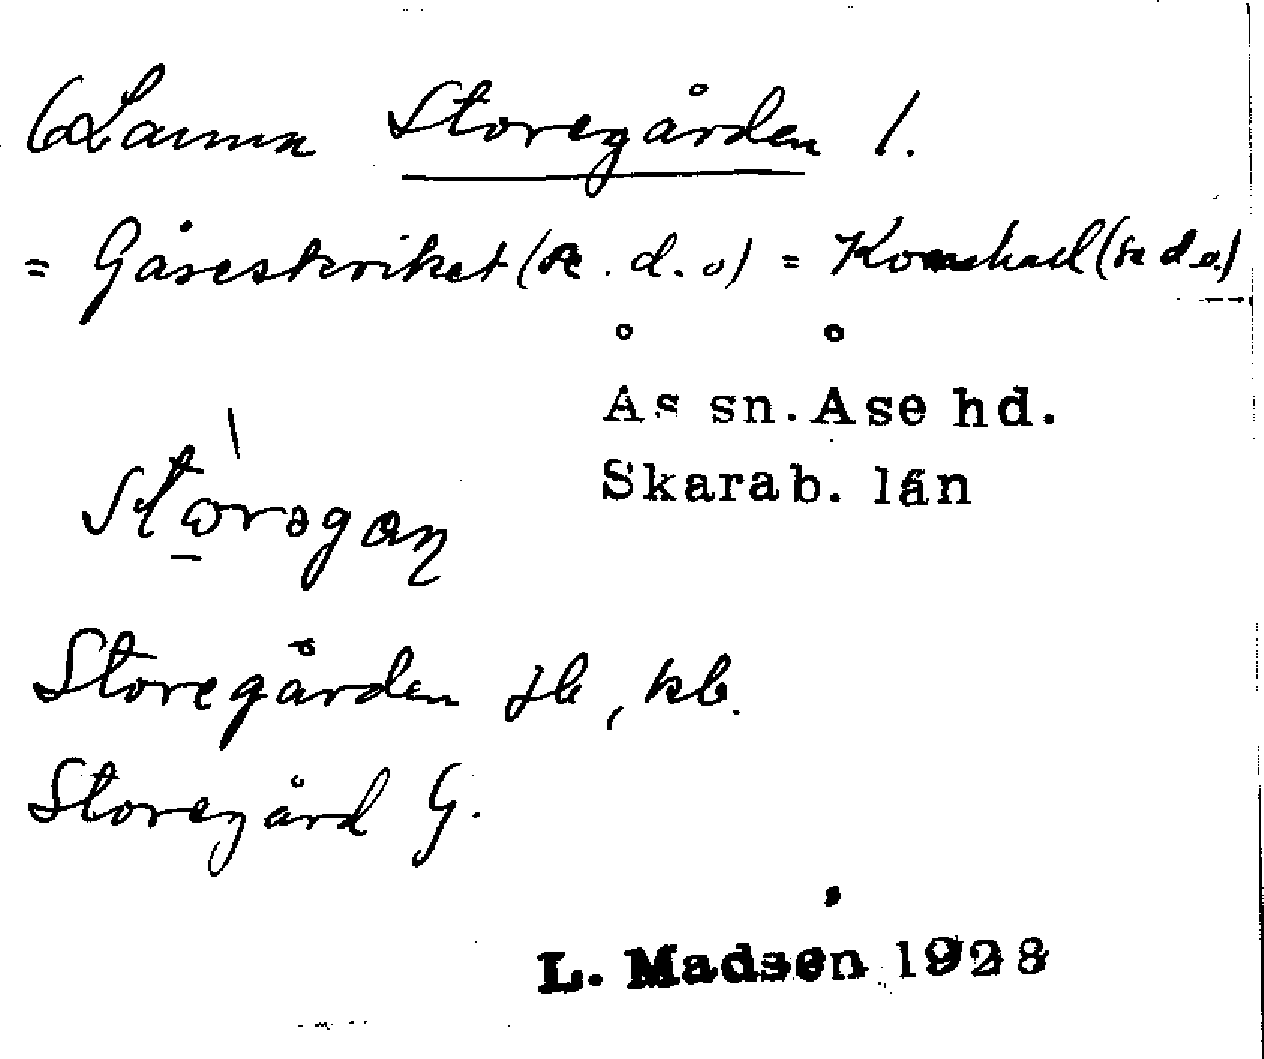 Lanna Storegården 1.
= Gåseskriket (se d. o) = Komhall (se d o.)
Ås sn. Åse hd.
Skarab. län
Storegården jb, kb.
Storegård G.
L. Madsén 1928